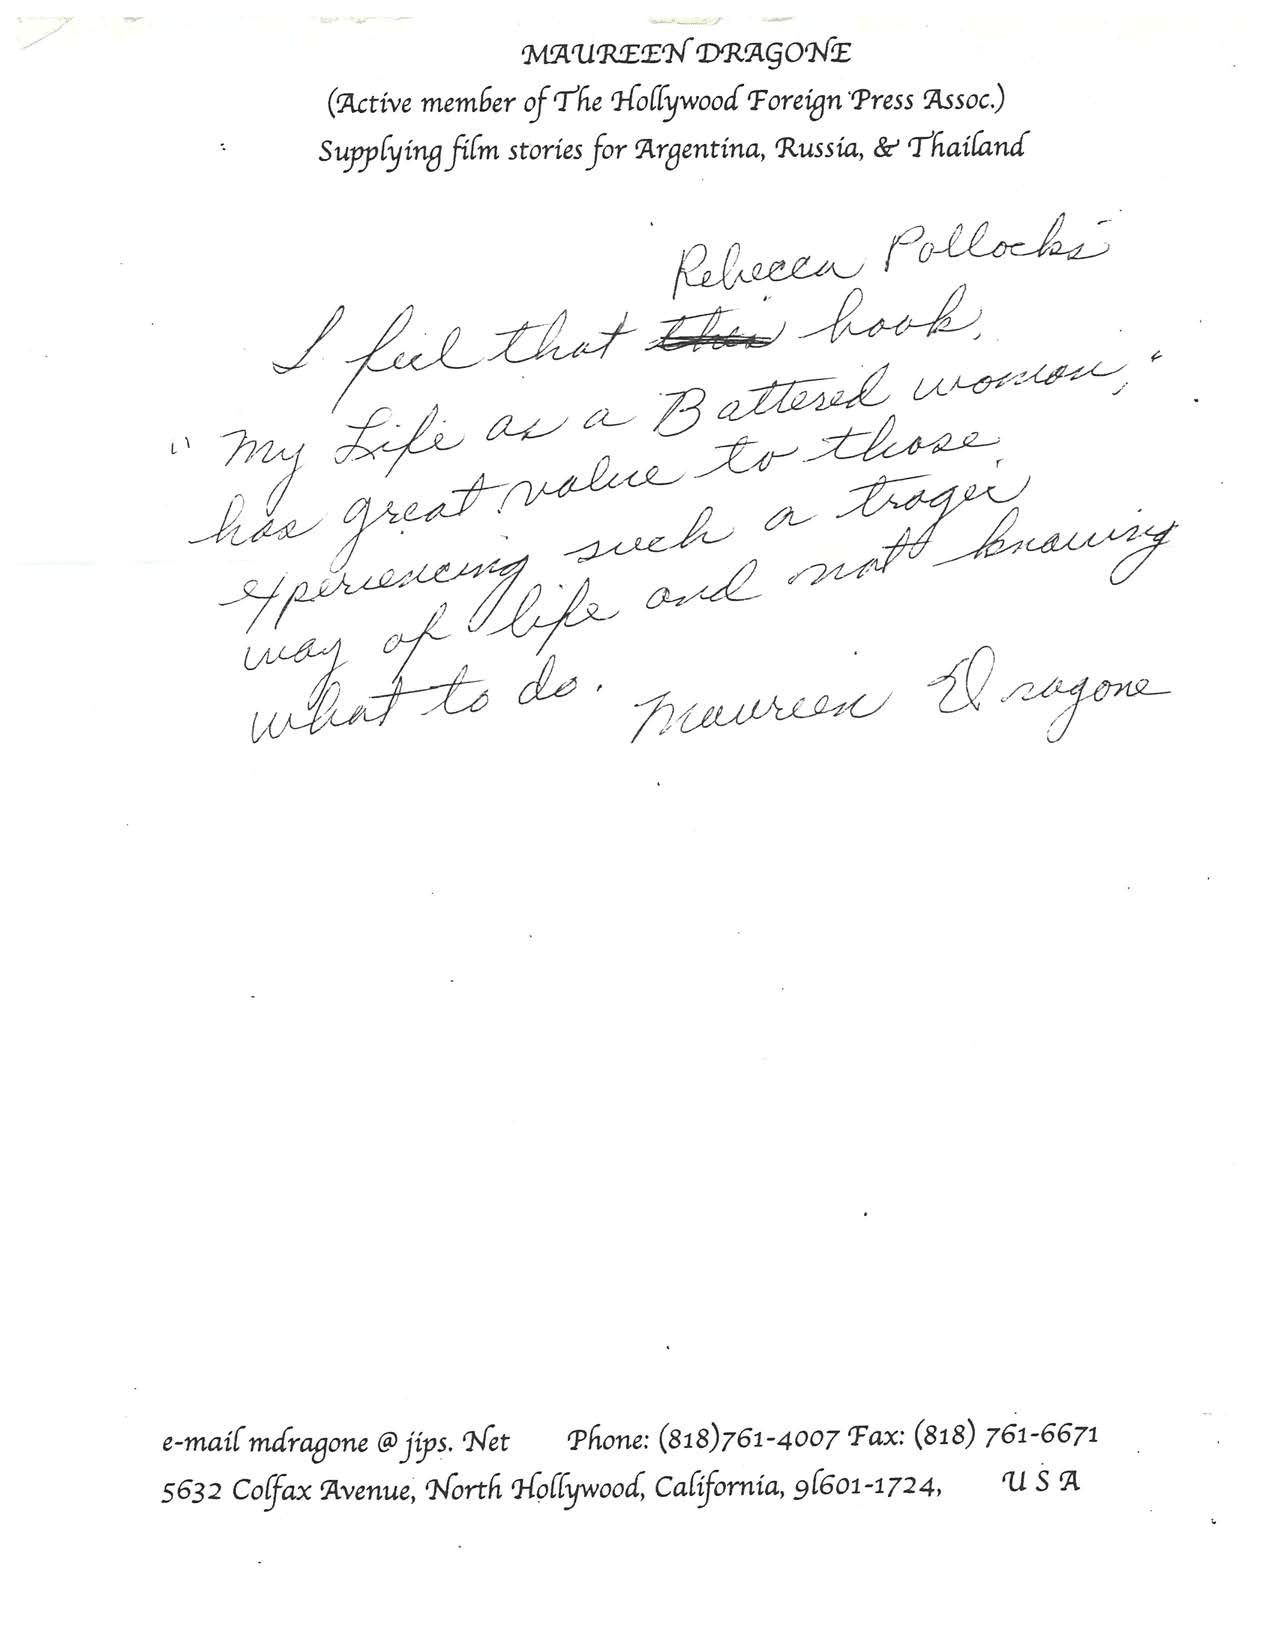 MAUREEN DRAGONE
(Active member of The Hollywood Foreign Press Assoc.)
Supplying film stories for Argentina, Russia, & Thailand
Rebecca Pollocks
I feel that this book,
"My Life as a Battered woman,"
has great value to those
experiencing such a tragic
way of life and not knowing
what to do.
Maureen Dragone
e-mail mdragone @ jips. Net Phone: (818)761-4007 Fax: (818) 761-6671
5632 Colfax Avenue, North Hollywood, California, 9l601-1724, U S A